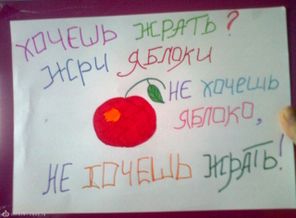 ХОЧЕШЬ ЖРАТЬ?
ЖРИ ЯБЛОКИ
НЕ ХОЧЕШЬ
ЯБЛОКО,
НЕ ХОЧЕШЬ ЖРАТЬ!